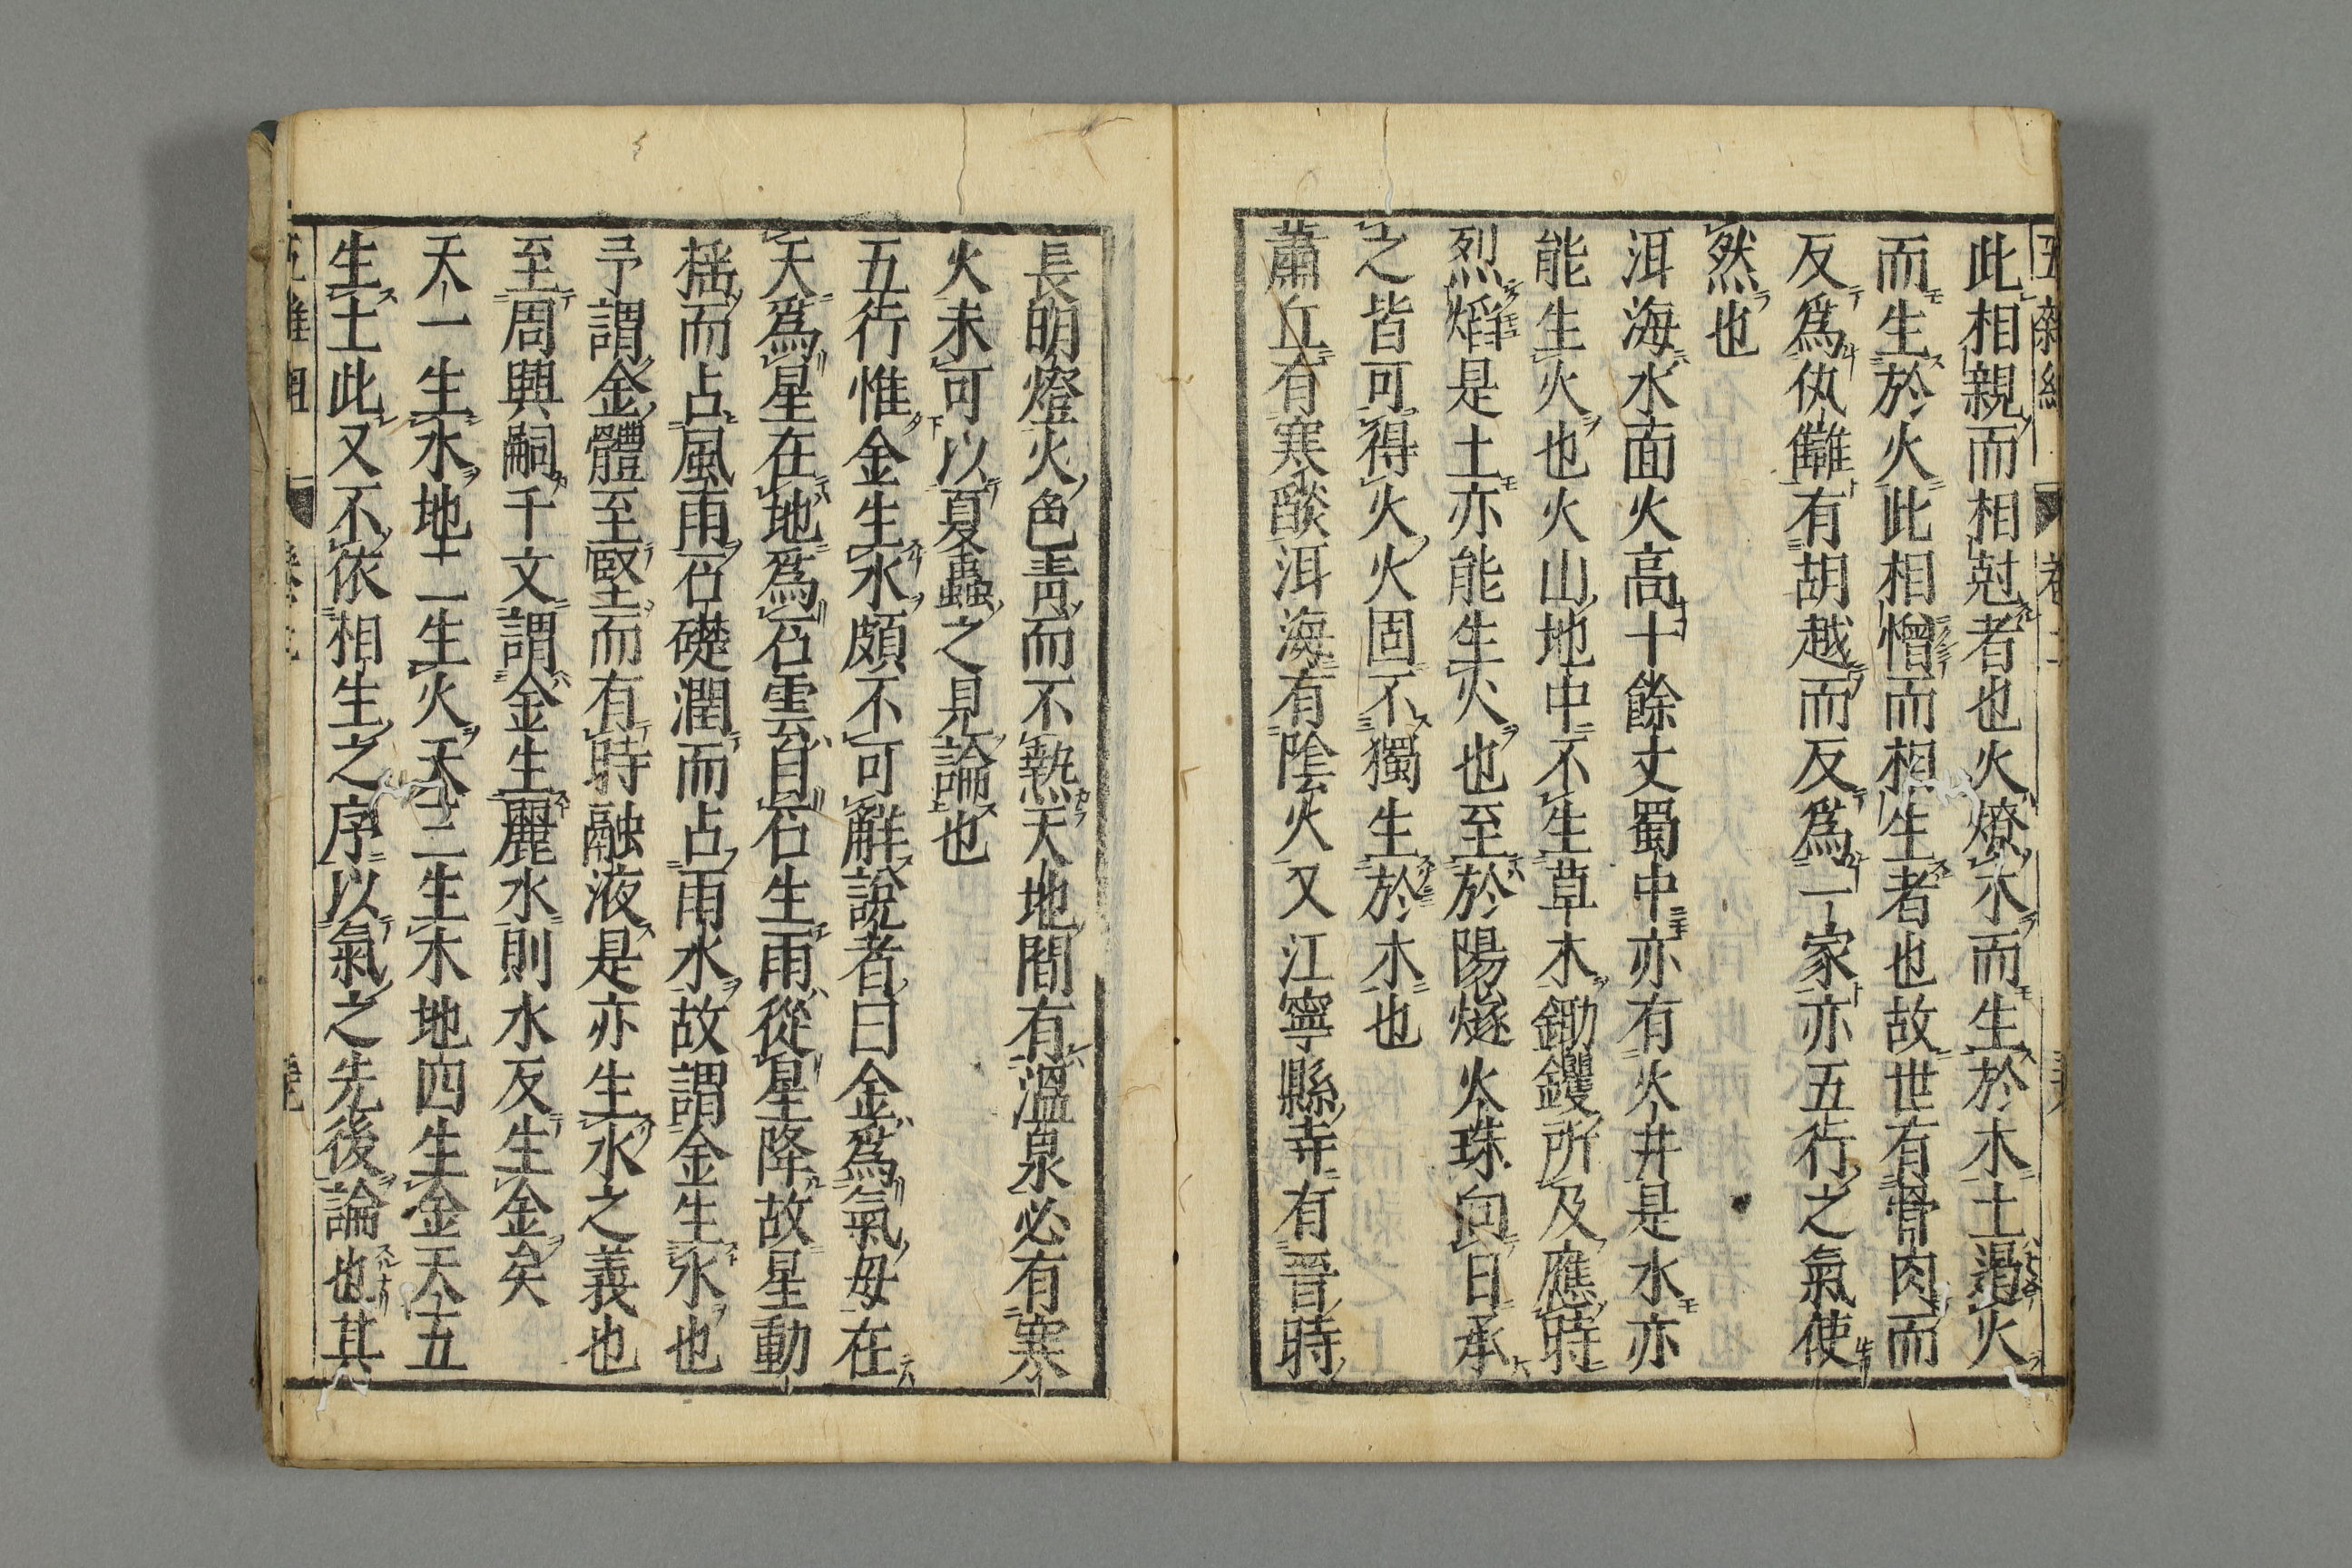 此相親而相尅者也火燎木而生於木土遏火
而生於火此相憎而相生者也故世有骨肉而
反爲仇讎有胡越而反爲一家亦五行之氣使
然也
洱海水面火高十餘丈蜀中亦有火井是水亦
能生火也火山地中不生草木鋤钁所及應時
烈焰是土亦能生火也至於陽燧火珠向日承
之皆可得火火固不獨生於木也
蕭丘有寒燄洱海有陰火又江寧縣寺有晉時
長明燈火色青而不熱天地間有溫泉必有寒
火未可以夏蟲之見論也
五行惟金生水頗不可解說者曰金爲氣母在
天爲星在地爲石雲自石生雨從星降故星動
搖而占風雨石礎潤而占雨水故謂金生水也
予謂金體至堅而有時融液是亦生水之義也
至周興嗣千文謂金生麗水則水反生金矣
天一生水地二生火天三生木地四生金天五
生土此又不依相生之序以氣之先後論也其
五雜組